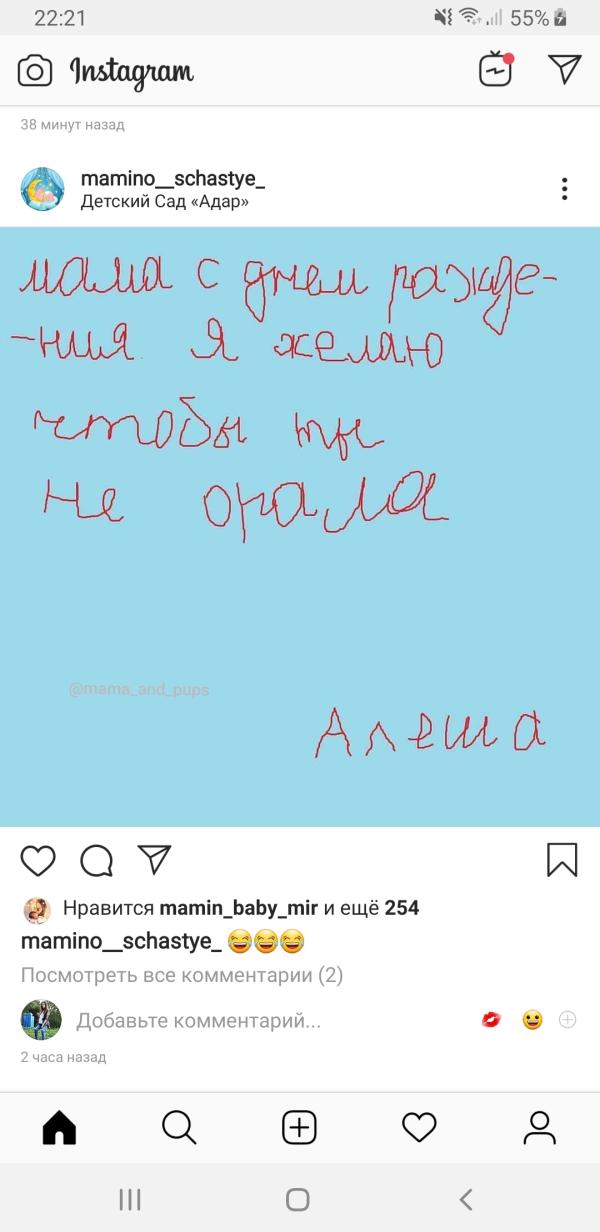 22:21
55%
Instagram
38 минут назад
mamino__schastye_
Детский Сад «Адар»
мама с днем ражде-
-ния я желаю
чтобы ты
не орала
@mama_and_pups
Алеша
Нравится mamin_baby_mir и ещё 254
mamino__schastye_ 😂😂😂
Посмотреть все комментарии (2)
Добавьте комментарий...
2 часа назад